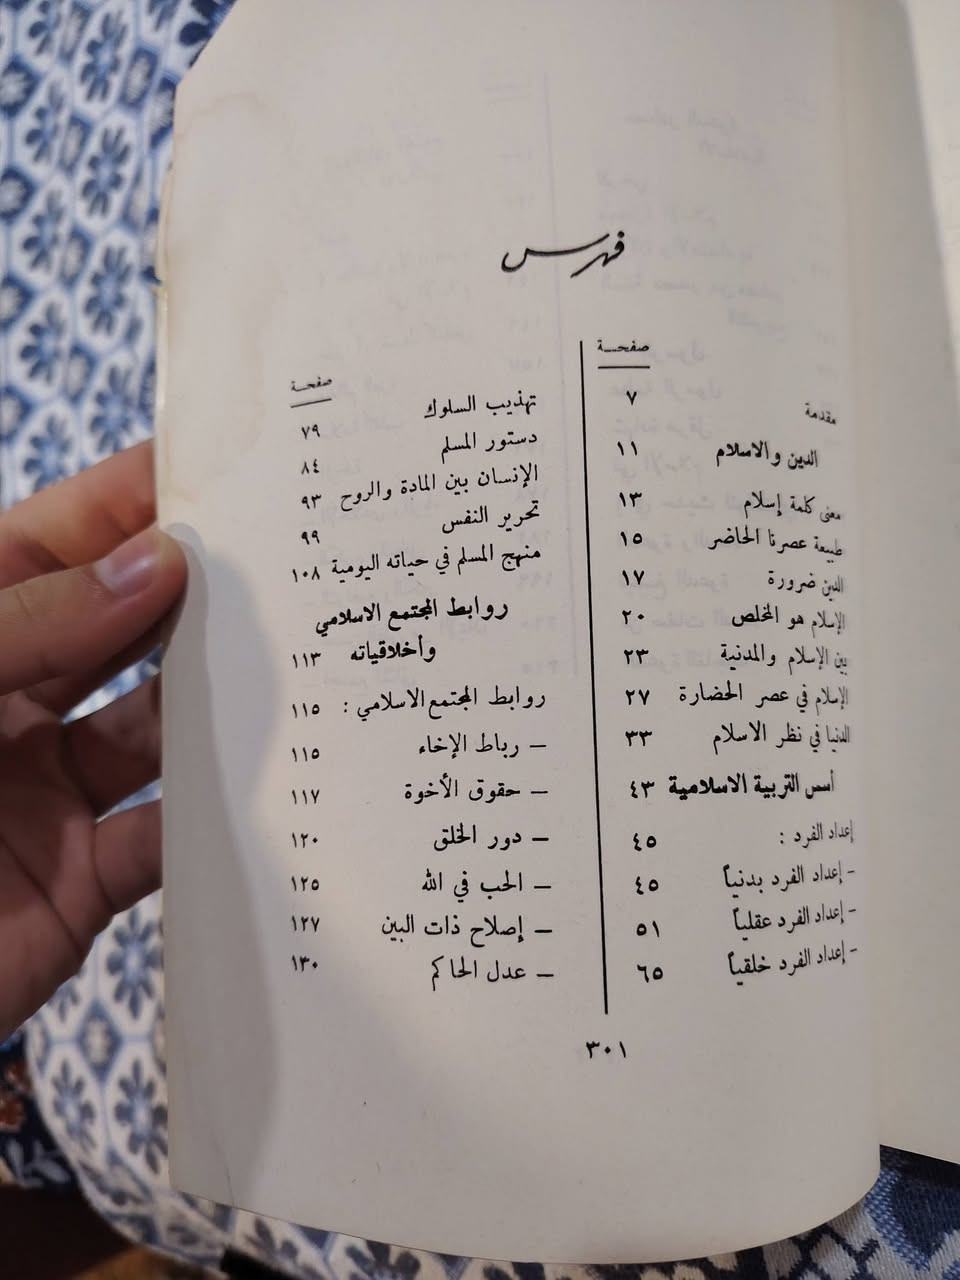 فهرس
صفحـة
مقدمة ٧
الدين والاسلام ١١
معنى كلمة إسلام ١٣
طبيعة عصرنا الحاضر ١٥
الدين ضرورة ١٧
الإسلام هو المخلص ٢٠
بين الإسلام والمدنية ٢٣
الإسلام في عصر الحضارة ٢٧
الدنيا في نظر الاسلام ٣٣
أسس التربية الاسلامية ٤٣
إعداد الفرد : ٤٥
- إعداد الفرد بدنياً ٤٥
- إعداد الفرد عقلياً ٥١
- إعداد الفرد خلقياً ٦٥
صفحـة
تهذيب السلوك ٧٩
دستور المسلم ٨٤
الإنسان بين المادة والروح ٩٣
تحرير النفس ٩٩
منهج المسلم في حياته اليومية ١٠٨
روابط المجتمع الاسلامي
وأخلاقياته ١١٣
روابط المجتمع الاسلامي : ١١٥
– رباط الإخاء ١١٥
– حقوق الأخوة ١١٧
– دور الخلق ١٢٠
– الحب في الله ١٢٥
– إصلاح ذات البين ١٢٧
– عدل الحاكم ١٣٠
٣٠١